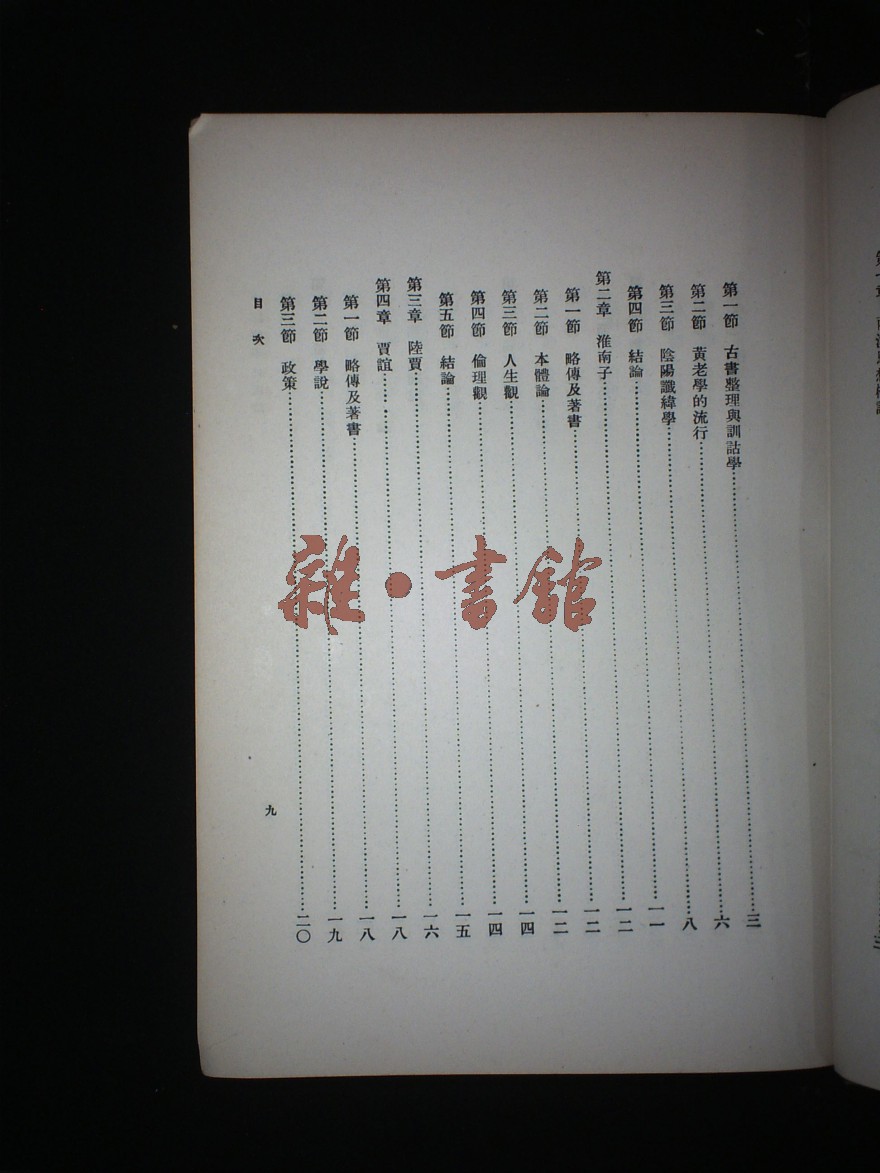 第一節 古書整理與訓詁學……三
第二節 黃老學的流行……六
第三節 陰陽讖緯學……八
第四節 結論……一一
第二章 淮南子……一二
第一節 略傳及著書……一二
第二節 本體論……一二
第三節 人生觀……一四
第四節 倫理觀……一四
第五節 結論……一五
第三章 陸賈……一六
第四章 賈誼……一八
第一節 略傳及著書……一八
第二節 學說……一九
第三節 政策……二〇
目次
九
雜·書館